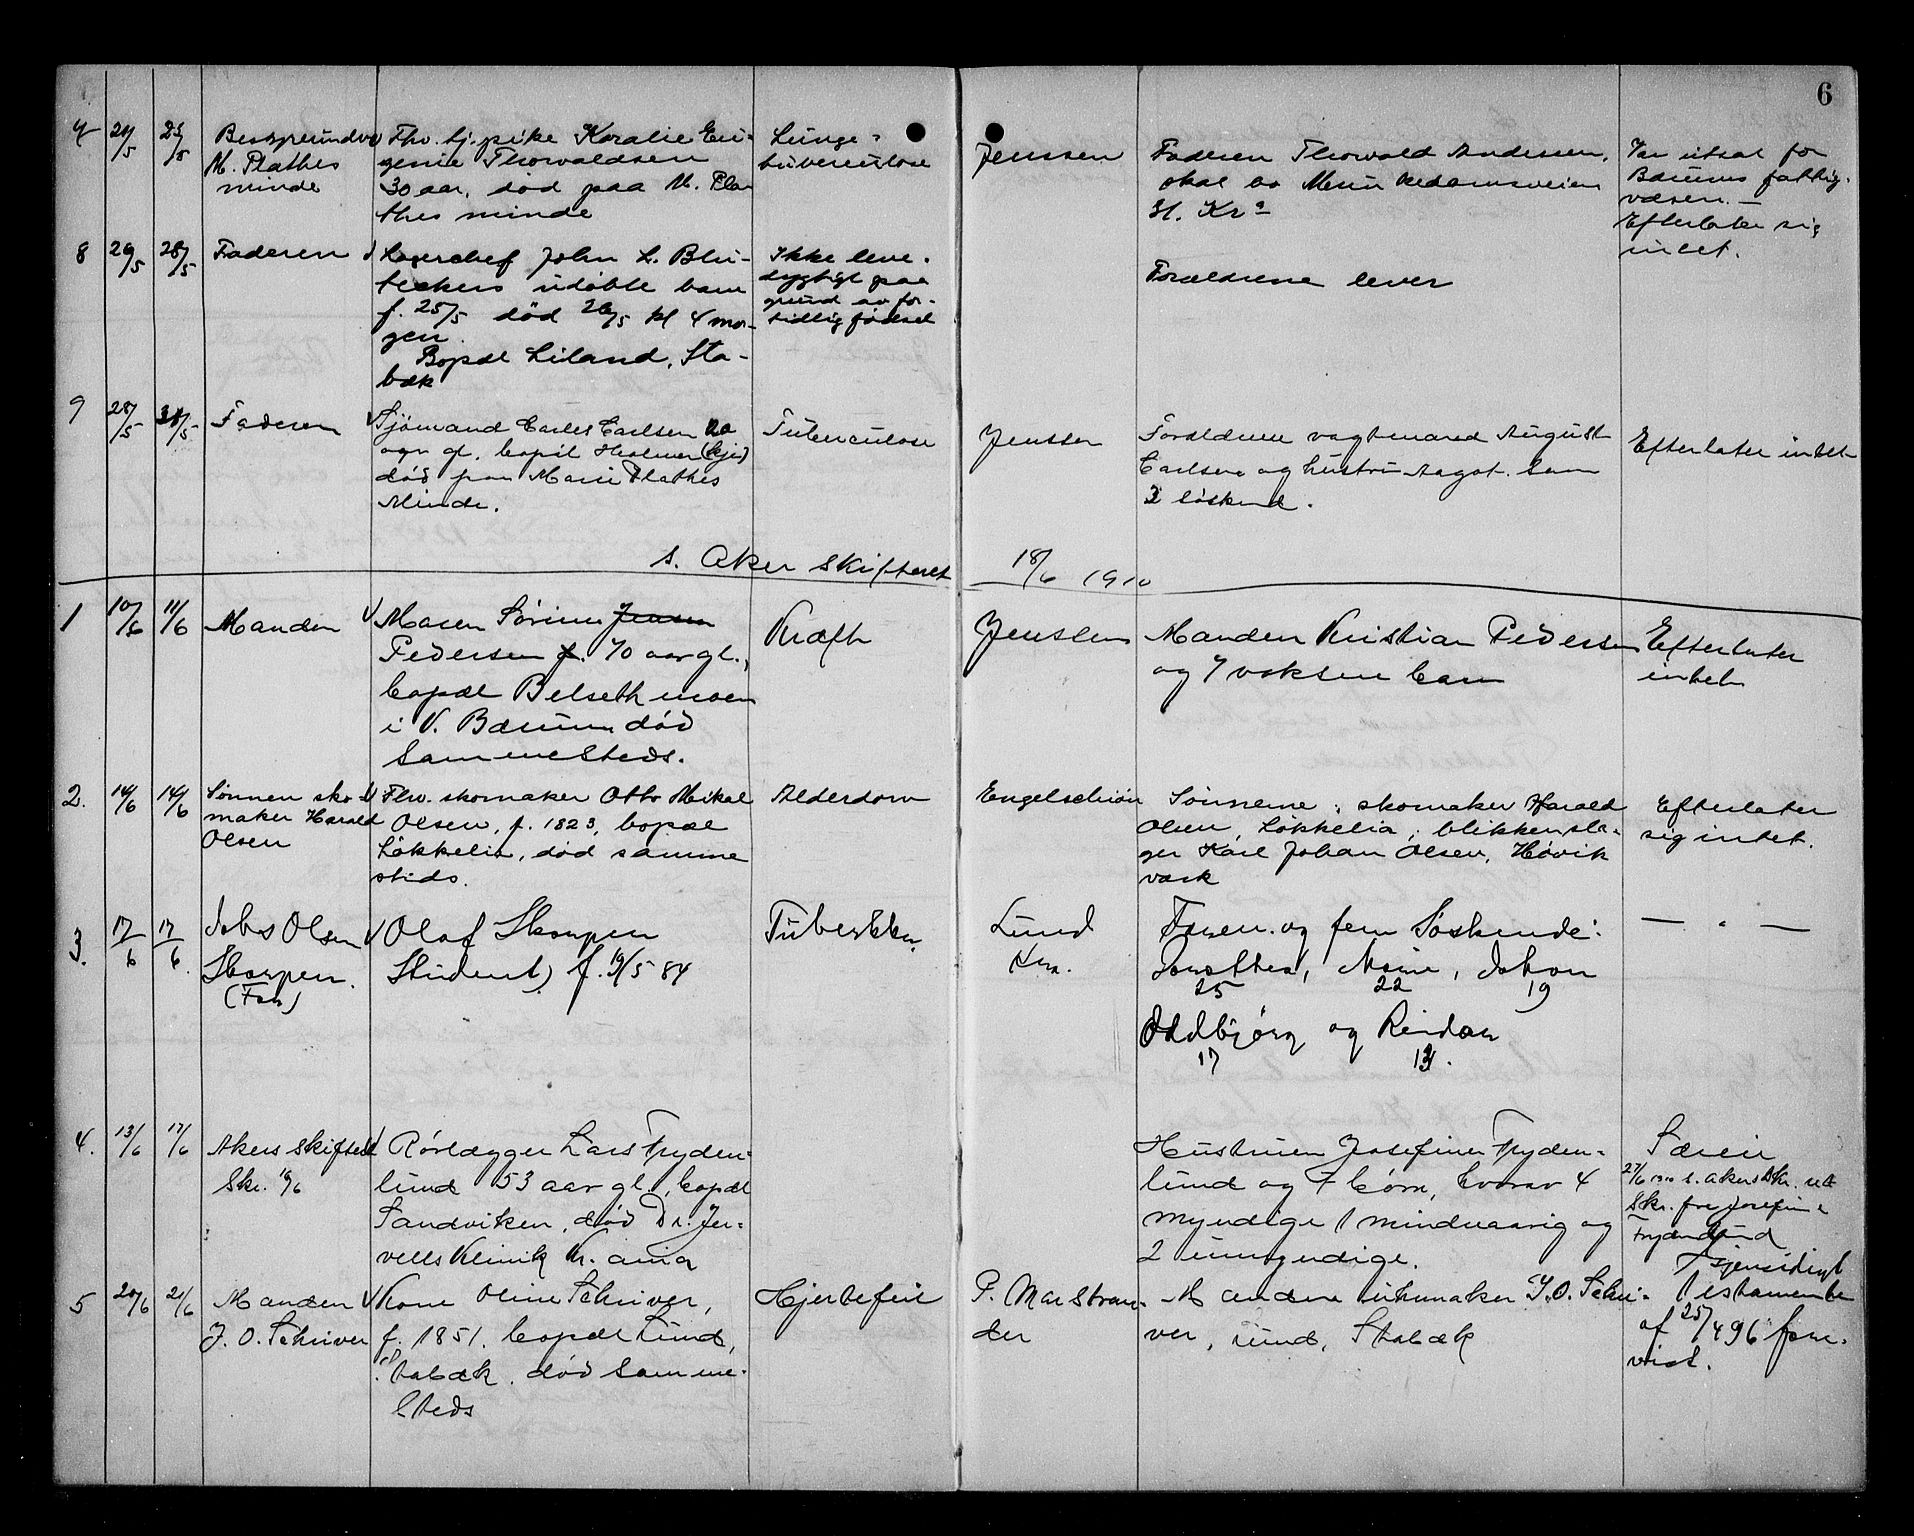 6
7 24/5 25/5
M. Plathes
minde
Fhv. tj. pike Koralie Eu-
genie Thorwaldsen
30 aar, død paa M. Pla
thes minde
Lunge-
tuberculose
Jenssen
Faderen Thorvald Andersen,
skal bo
Var utsat for
Bærums fattig-
væsen. —
Efterlater sig
intet.
8 26/5 28/5
Faderen
Lagerchef John L.
udøbte barn
f. 25/5 død 26/5 kl 4 mor-
gen.
Bopæl Liland, Sta-
bæk
Ikke leve-
dygtigt paa
grund av for-
tidlig fødsel
Forældrene lever
9 28/5 31/5
Faderen
Sjømand Carler Carlsen 20
aar gl. bopæl Holmen
død paa Marie Plathes
Minde.
Tuberculose
Jenssen
Forældrene vagtmand August
Carlsen og hustru Aagot. Sam
3 søskend.
Efterlater intet
s. Aker skifteret 18/6 1910
1 10/6 11/6
Manden
Maren Sørine Jensen
Pedersen f. 70 aar gl.,
bopæl Belseth moen
i V. Bærum død
sammesteds.
Kræft
Jenssen
Manden Kristian Pedersen
og 7 voksne barn
Efterlater
intet
2. 14/6 14/6
Sønnen sko-
maker Harald
Olsen
Fhv. skomaker Otto Mikal
Olsen, f. 1823, bopæl
Løkkelia, død samme
steds.
Alderdom
Engelschiøn
Sønnerne: skomaker Harald
Olsen, Løkkelia, blikkensla-
ger Karl Johan Olsen, Høvik
værk
Efterlater
sig intet.
3. 17/6 17/6
Johs Olsen
Skorpen.
(Far)
Olaf Skorpen
Student) f. 19/5 84
Tuberkku.
Lund
Kra.
Faren og fem Søskende:
Dorothea, Marie, Johan
25 22 19
Oddbjørg og Reidar
17
— " —
4. 13/6 17/6
Akers Skifteret
Skr. 16/6
Rørlægger Lars Fryden-
lund 53 aar gl., bopæl
Sandviken, død Dr. Jer-
vells Klinik Kr.ania
Hustruen Josefine Fryden-
lund og 7 børn, hvorav 4
myndige 1 mindreaarig og
2 umyndige.
Særeie
27/6 1910 s. Akers Skr. ret
Skr. fra Josefine
Frydenlund
5 20/6 21/6
Manden
J. O. Schriver
Kone Oline Schriver,
f. 1851. bopæl Lund,
Stabæk. død samme-
steds
Hjertefeil
P. Marstran-
der
urmaker J. O. Schri-
ver, Lund, Stabæk
gjensidigt
Testamente
af 25/4 96 frem-
vist.